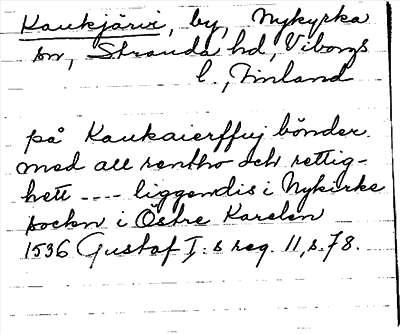 Kaukjärvi, by, Nykyrka
sn, Stranda hd, Viborgs
l., Finland
på Kaukaierffuj bönder
med all rentho och rettig-
hett ---- liggendis i Nykirke
sockn i Östre Karelen
1536 Gustaf I:s reg. 11, s. 78.